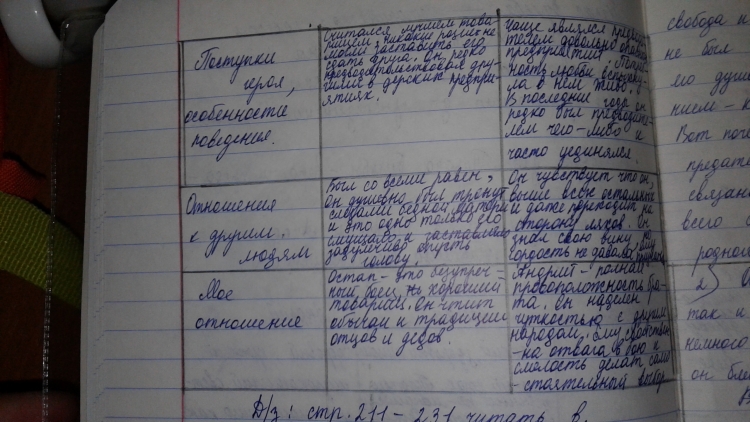 Поступки
героя,
особенности
поведения.
Считался лучшим това-
рищем, никакие розги не
могли заставить его
сдать друга. Он редко
предводительствовал дру-
гими в дерзких предпри-
ятиях.
Чаще являлся предводи-
телем довольно опасно
предприятия. Потреб-
ность любви вспыхну-
ла в нём живо.
В последние года он
редко был предводите-
лем чего-либо и
часто уединялся.
Отношения
к другим
людям
Был со всеми равен,
он душевно был тронут
слезами бедной матери
и это одно только его
смущало и заставляло
задумчиво опустить
голову.
Он чувствует что он
выше всех остальных
и даже переходит на
сторону ляхов. Он
знал свою вину, но
гордость не давала
Мое
отношение
Остап - это безупреч-
ный боец, хороший
товарищ. Он чтит
обычаи и традиции
отцов и дедов.
Андрий - полная
противоположность бра-
та. Он наделен
чуткостью к другим
народам. Ему свойствен-
-на отвага в бою и
смелость делать само-
-стоятельный выбор
Д/з: стр. 211-231 читать в.
свобода и
не был
его душ
нием -
Вот поч
предате
связан
всего
родном
2)
так и
немного
он бле